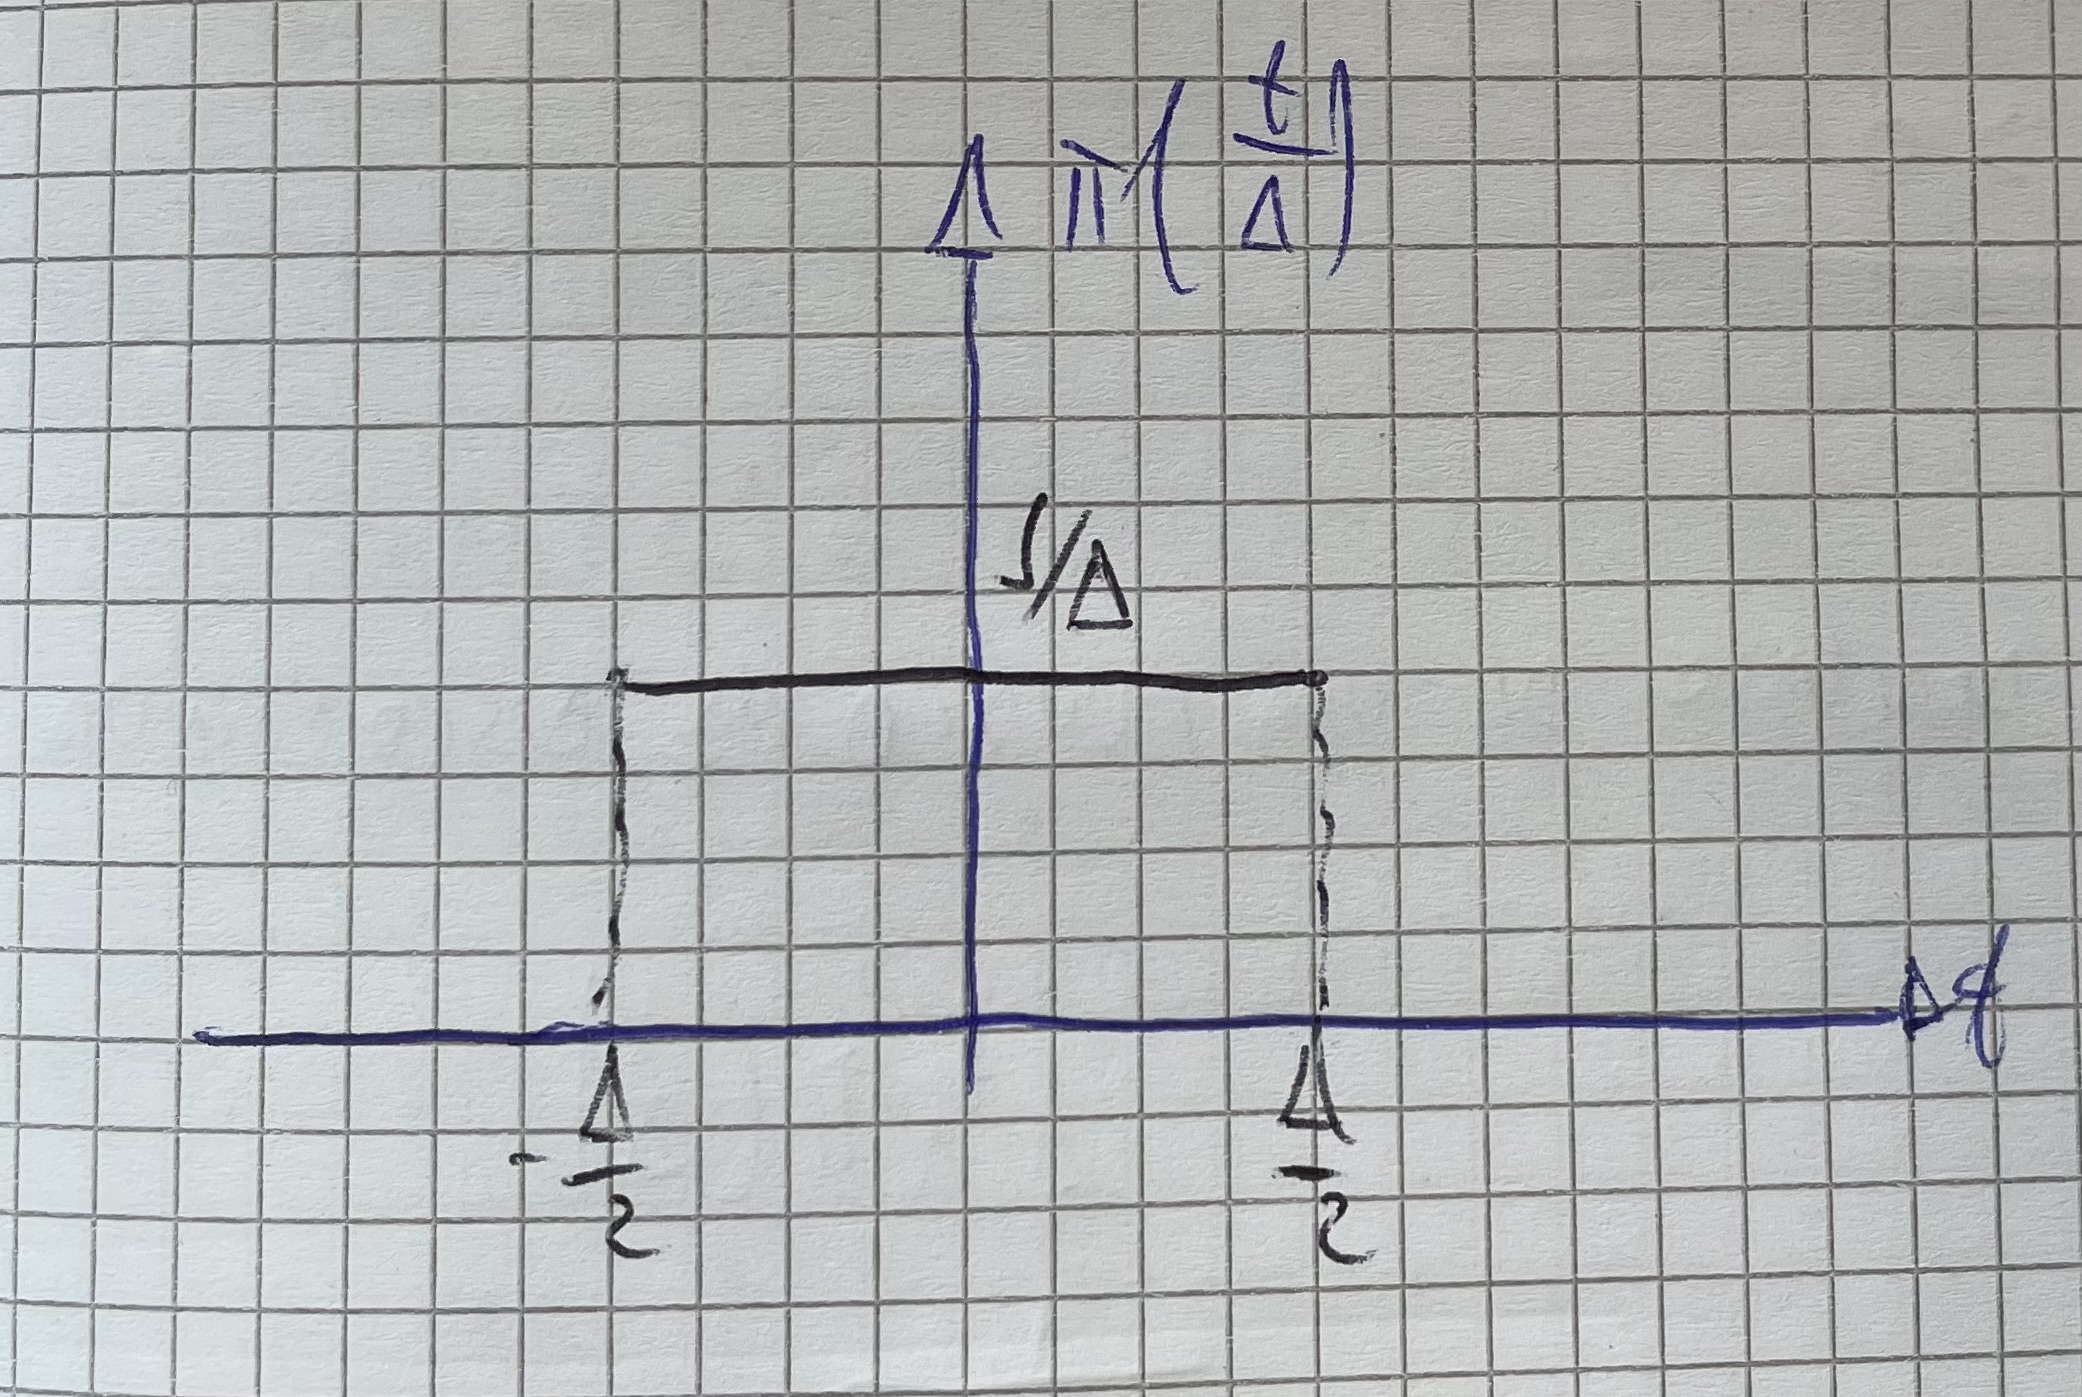 π(t/Δ)
1/Δ
t
-Δ/2
Δ/2